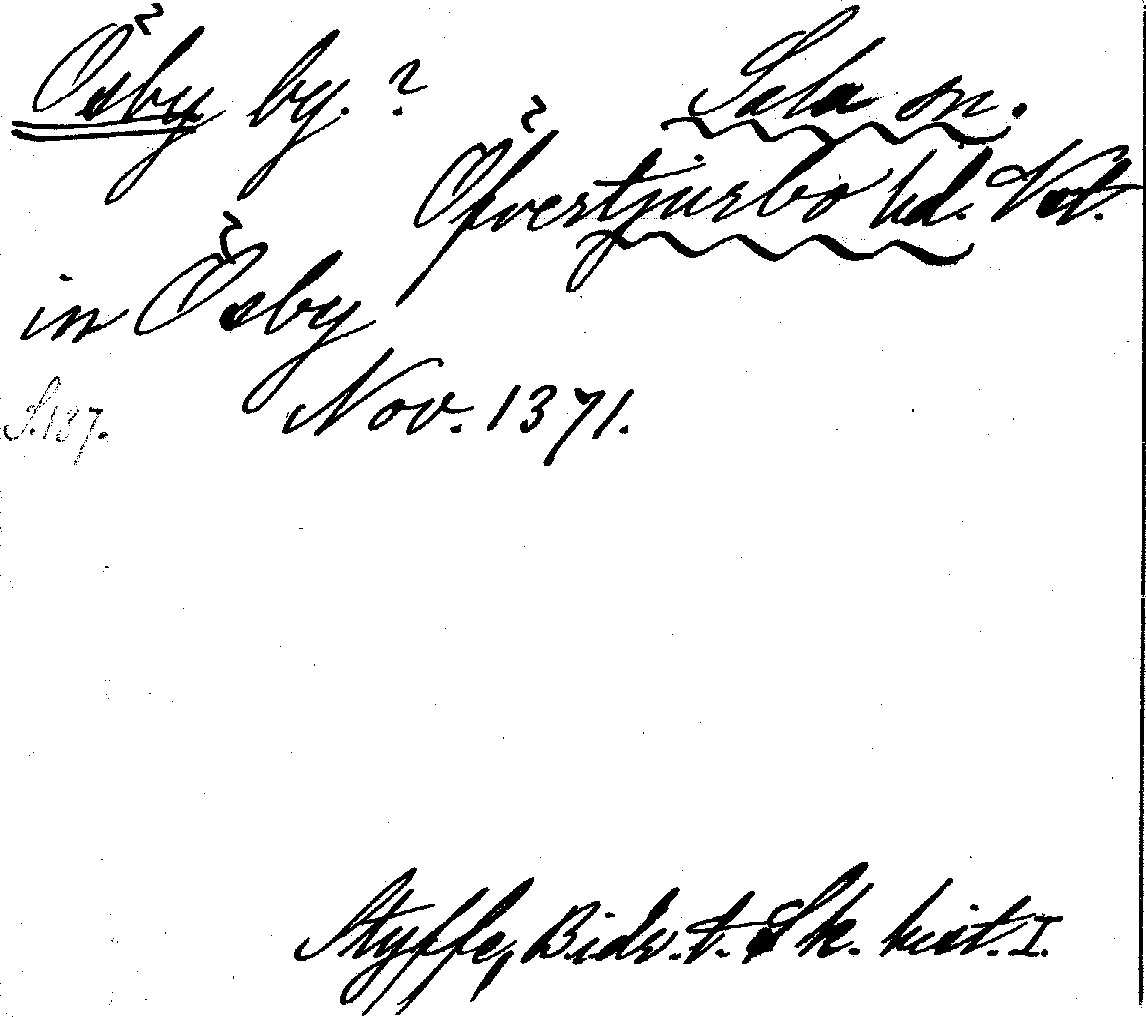 Ösby by. ? Sala sn.
Öfvertjurbo hd. Vstm.
in Ösby
Nov. 1371.
S. 137.
Styffe, Bidr. t. Sk. hist. I.